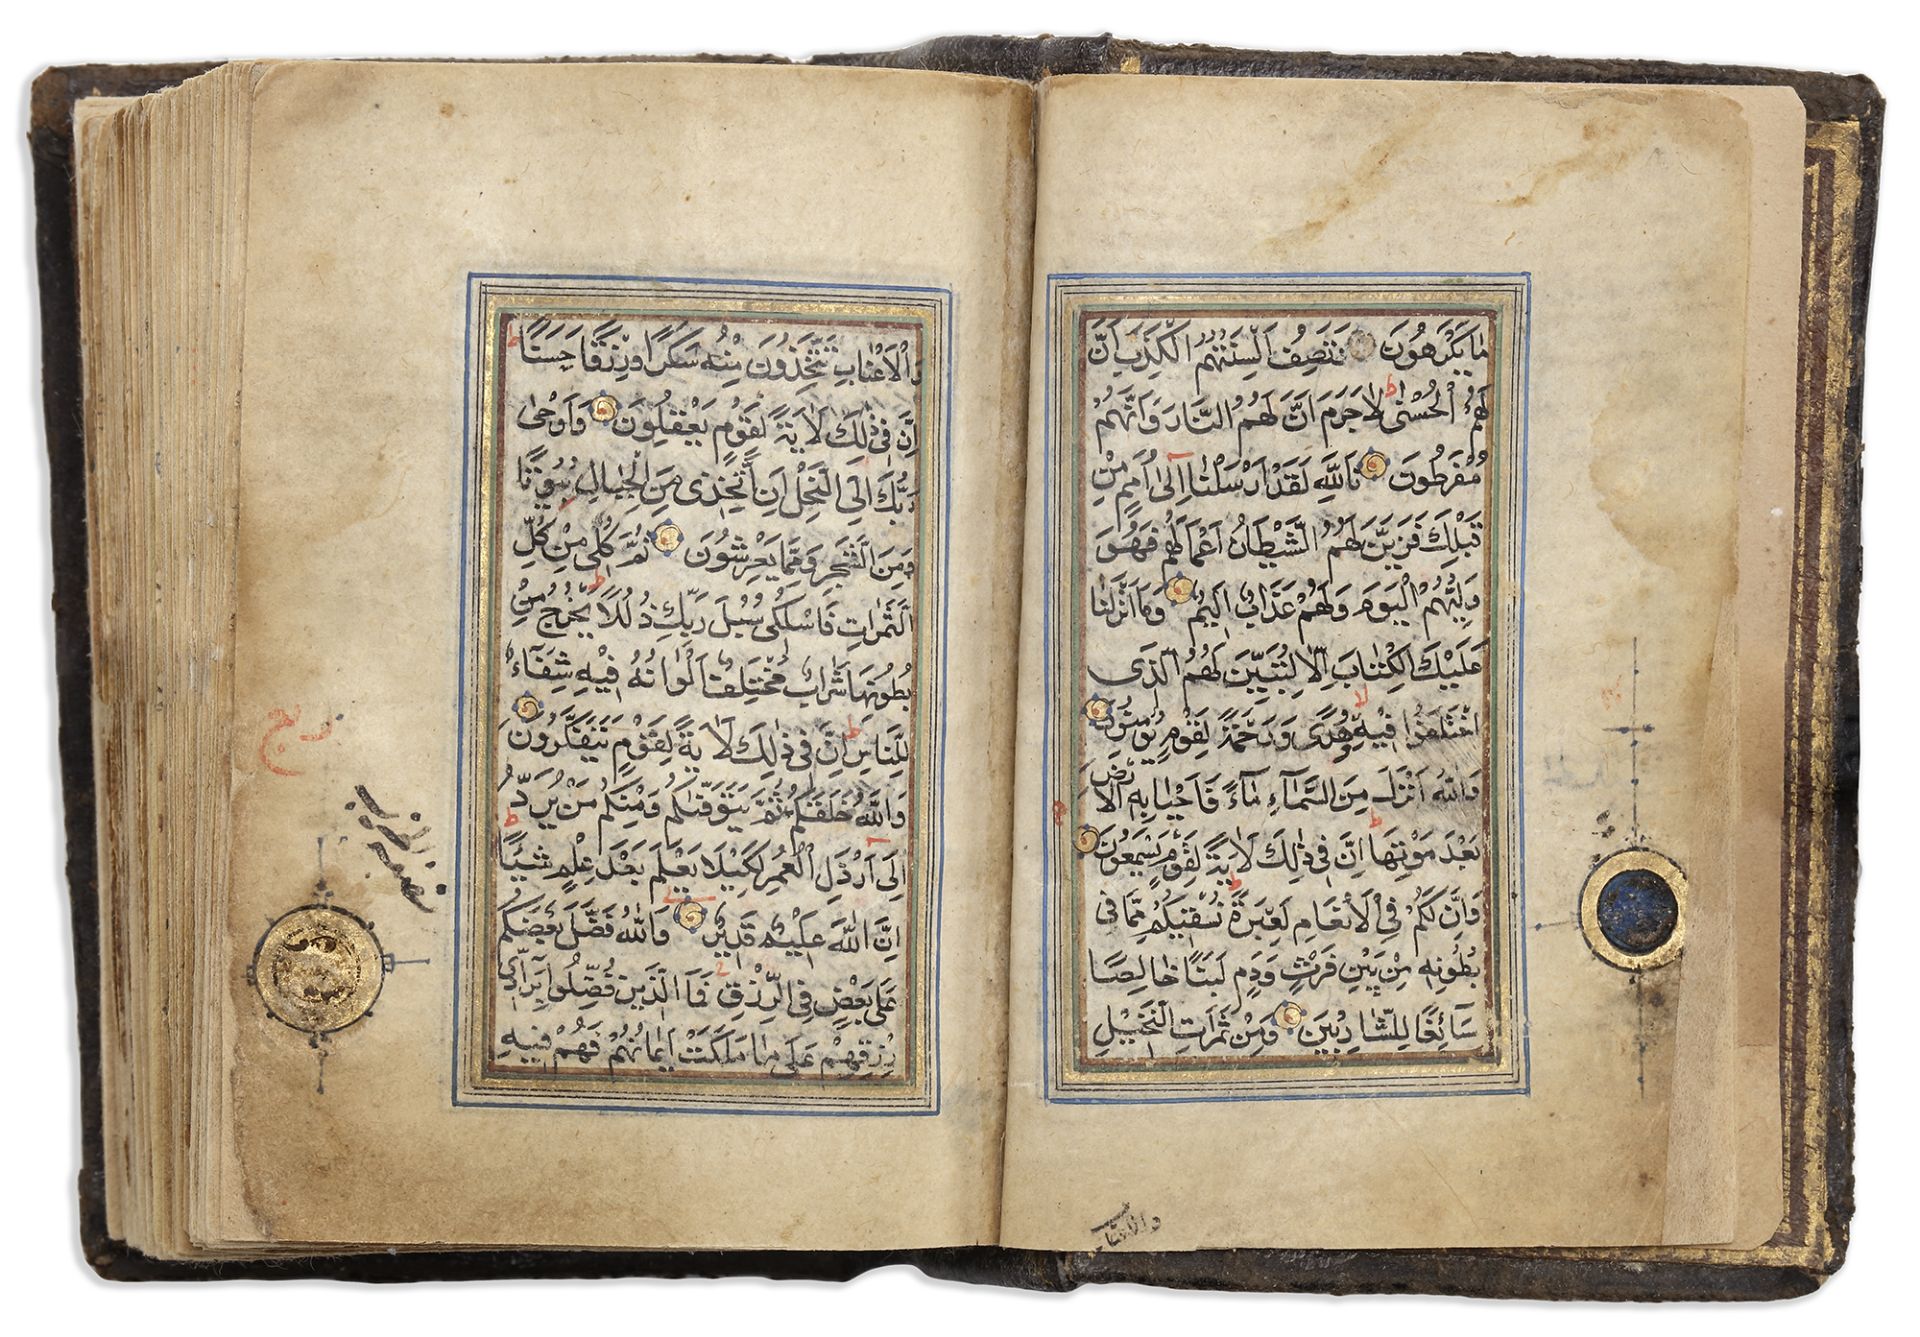 مَا يَكْرَهُونَ وَتَصِفُ اَلْسِنَتُهُمُ الْكَذِبَ اَنَّ
لَهُمُ الْحُسْنٰى لَا جَرَمَ اَنَّ لَهُمُ النَّارَ وَاَنَّهُمْ
مُفْرَطُونَ تَاللّٰهِ لَقَدْ اَرْسَلْنَا اِلٰى اُمَمٍ مِنْ
قَبْلِكَ فَزَيَّنَ لَهُمُ الشَّيْطَانُ اَعْمَالَهُمْ فَهُوَ
وَلِيُّهُمُ الْيَوْمَ وَلَهُمْ عَذَابٌ اَلِيمٌ وَمَا اَنْزَلْنَا
عَلَيْكَ الْكِتَابَ اِلَّا لِتُبَيِّنَ لَهُمُ الَّذِى
اخْتَلَفُوا فِيهِ وَهُدًى وَرَحْمَةً لِقَوْمٍ يُؤْمِنُونَ
وَاللّٰهُ اَنْزَلَ مِنَ السَّمَآءِ مَآءً فَاَحْيَا بِهِ الْاَرْضَ
بَعْدَ مَوْتِهَا اِنَّ فِى ذٰلِكَ لَاٰيَةً لِقَوْمٍ يَسْمَعُونَ
وَاِنَّ لَكُمْ فِى الْاَنْعَامِ لَعِبْرَةً نُسْقِيكُمْ مِمَّا فِى
بُطُونِهِ مِنْ بَيْنِ فَرْثٍ وَدَمٍ لَبَنًا خَالِصًا
سَآئِغًا لِلشَّارِبِينَ وَمِنْ ثَمَرَاتِ النَّخِيلِ
والاعناب
وَالْاَعْنَابِ تَتَّخِذُونَ مِنْهُ سَكَرًا وَرِزْقًا حَسَنًا
اِنَّ فِى ذٰلِكَ لَاٰيَةً لِقَوْمٍ يَعْقِلُونَ وَاَوْحٰى
رَبُّكَ اِلَى النَّحْلِ اَنِ اتَّخِذِى مِنَ الْجِبَالِ بُيُوتًا
وَمِنَ الشَّجَرِ وَمِمَّا يَعْرِشُونَ ثُمَّ كُلِى مِنْ كُلِّ
الثَّمَرَاتِ فَاسْلُكِى سُبُلَ رَبِّكِ ذُلُلًا يَخْرُجُ مِنْ
بُطُونِهَا شَرَابٌ مُخْتَلِفٌ اَلْوَانُهُ فِيهِ شِفَآءٌ
لِلنَّاسِ اِنَّ فِى ذٰلِكَ لَاٰيَةً لِقَوْمٍ يَتَفَكَّرُونَ
وَاللّٰهُ خَلَقَكُمْ ثُمَّ يَتَوَفّٰيكُمْ وَمِنْكُمْ مَنْ يُرَدُّ
اِلٰى اَرْذَلِ الْعُمُرِ لِكَيْلَا يَعْلَمَ بَعْدَ عِلْمٍ شَيْئًا
اِنَّ اللّٰهَ عَلِيمٌ قَدِيرٌ وَاللّٰهُ فَضَّلَ بَعْضَكُمْ
عَلٰى بَعْضٍ فِى الرِّزْقِ فَمَا الَّذِينَ فُضِّلُوا بِرَآدِّى
رِزْقِهِمْ عَلٰى مَا مَلَكَتْ اَيْمَانُهُمْ فَهُمْ فِيهِ
نصف الحزب